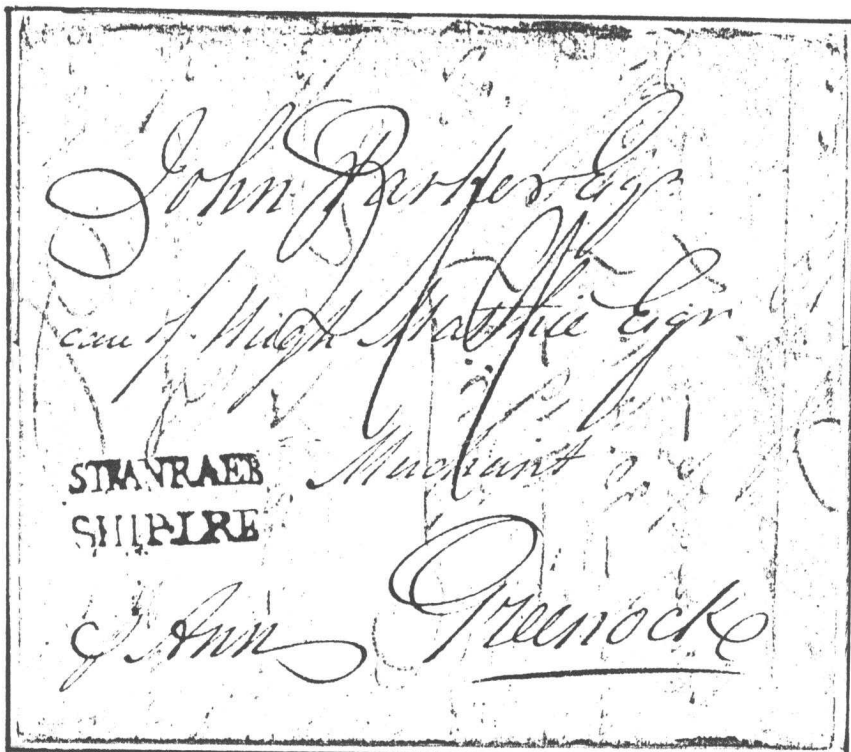 John Parker Esqr
care of Hugh Mathie Esqr
Merchant
STRANRAER
SHIP LRE
Ann Greenock